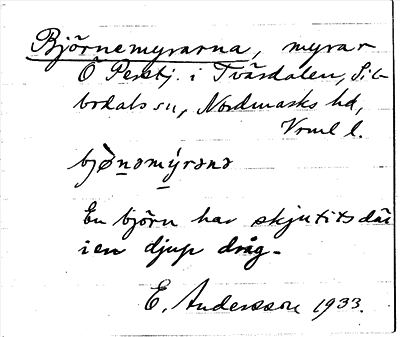 Björnemyrarna, myrar
Ö Perstj. i Tvärdalen, Sil-
bodals sn, Nordmarks hd,
Vrml l.
En björn har skjutits där
i en djup dråg.
E. Andersson 1933.